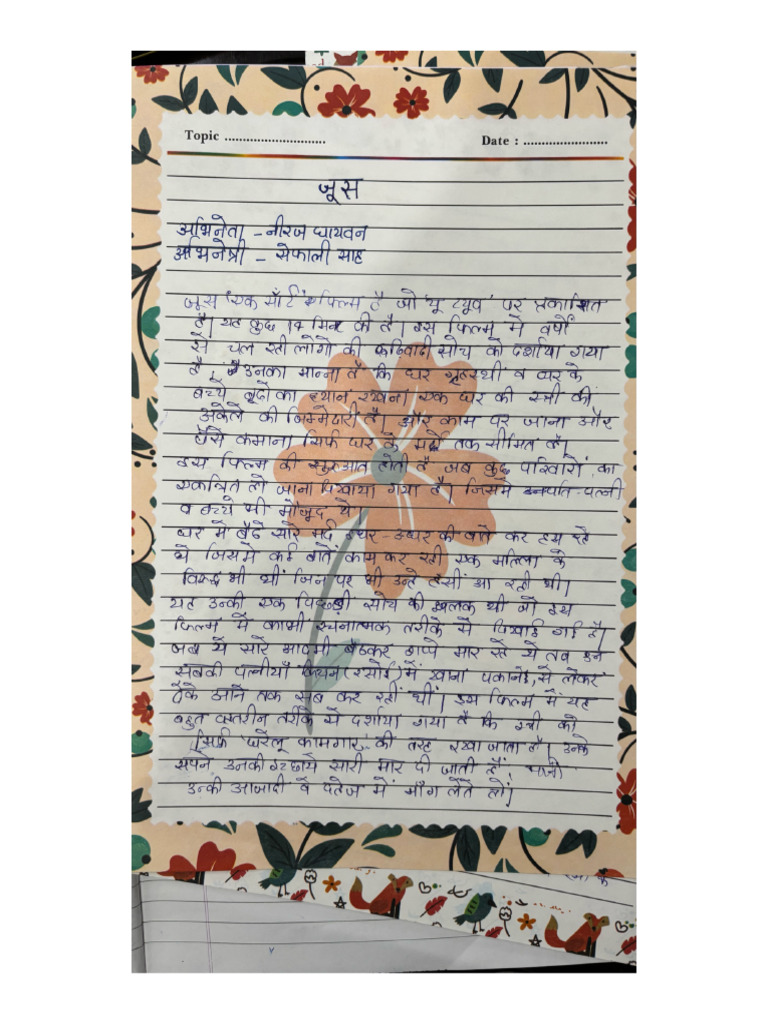 Topic ............................
Date : ........................
जूस
अभिनेता - नीरज घायवन
अभिनेत्री - सेफाली साह
जूस एक शॉर्ट फिल्म है जो 'यू ट्यूब' पर प्रकाशित
है। यह कुछ 14 मिनट की है। इस फिल्म में वर्षों
से चल रही लोगों की रूढिवादी सोच को दर्शाया गया
है, उनका मान्ना है कि घर गृहस्थी व घर के
बच्चे बूढ़ो का ध्यान रखना एक घर की स्त्री की
अकेले की जिम्मेदारी है। और काम पर जाना और
पैसे कमाना सिर्फ घर के मर्दो तक सीमित है।
इस फिल्म की शुरुआत होती है जब कुछ परिवारों का
एकत्रित हो जाना दिखाया गया है। जिसमे पति-पत्नी
व बच्चे भी मौजूद थे।
घर में बैठे सारे मर्द इधर-उधर की बाते कर रहे
थे जिसमें कई बातें काम कर रही एक महिला के
विरुद्ध भी थीं जिन पर भी उन्हे हँसी आ रही थी।
यह उनकी एक पिछड़ी सोच की झलक थी जो इस
फिल्म में काफी रचनात्मक तरीके से दिखाई गई है।
जब ये सारे आदमी बैठकर गप्पे मार रहे थे तब इन
सबकी पत्नीयाँ किचन (रसोई) में खाना पकाने से लेकर
देके आने तक सब कर रहीं थीं। इस फिल्म में यह
बहुत बहतरीन तरीके से दर्शाया गया है कि स्त्री को
सिर्फ 'घरेलू कामगार' की तरह रखा जाता है। उनके
सपने उनकी इच्छाये सारी मार दी जाती हैं, मानो
उनकी आजादी वे दहेज में माँग लेते हो।